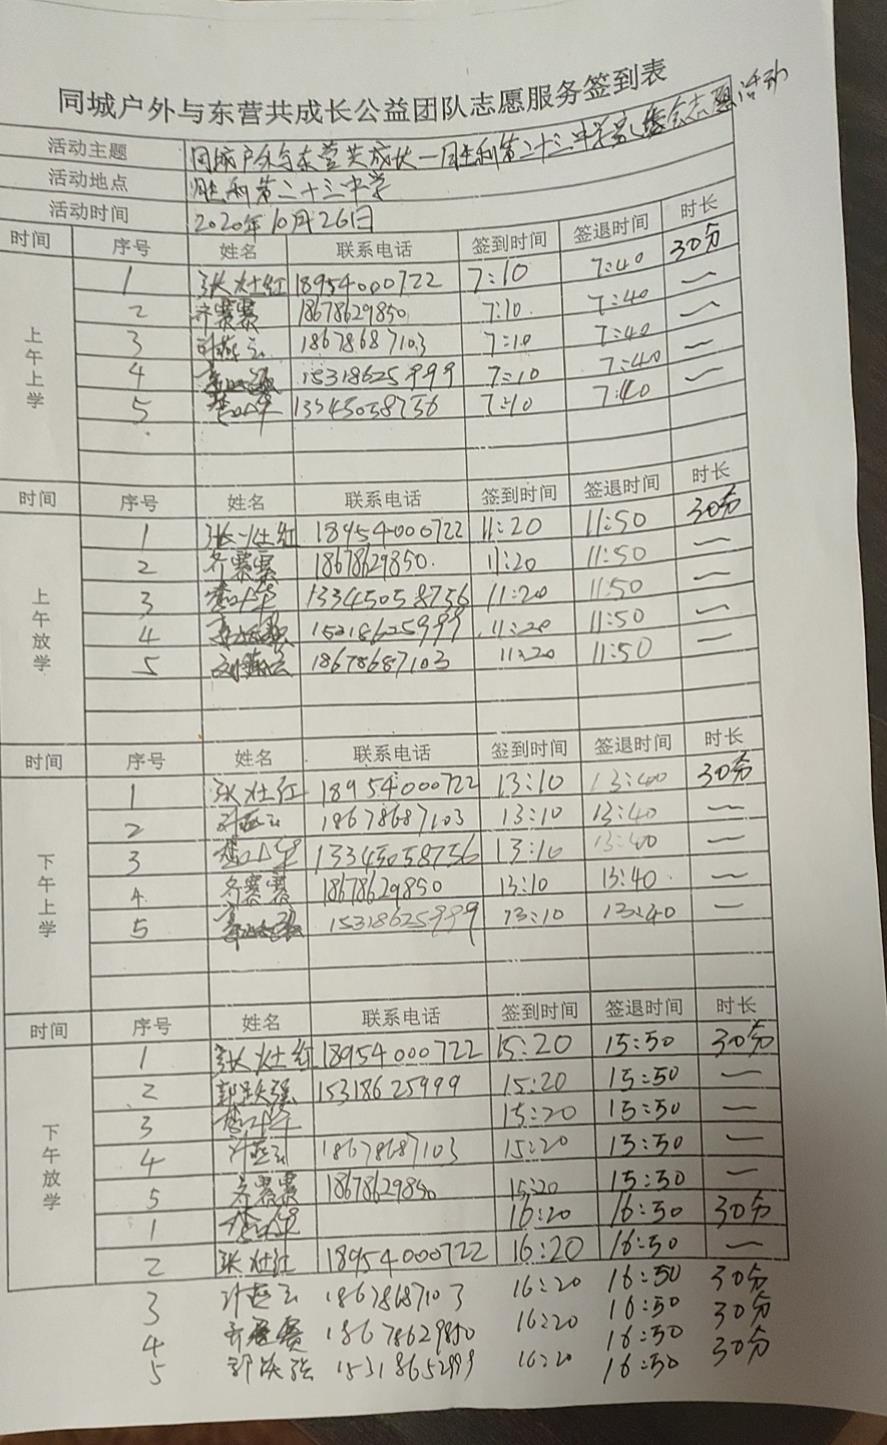 同城户外与东营共成长公益团队志愿服务签到表
活动主题 同城户外与东营共成长—胜利第二十三中学家委会志愿活动
活动地点 胜利第二十三中学
活动时间 2020年10月26日
时间 序号 姓名 联系电话 签到时间 签退时间 时长
上午上学
1 张灶红 18954000722 7:10 7:40 30分
2 齐赛赛 18678629850 7:10 7:40 —
3 18678687103 7:10 7:40 —
4 15318625999 7:10 7:40 —
5 13345058756 7:10 7:40 —
时间 序号 姓名 联系电话 签到时间 签退时间 时长
上午放学
1 张灶红 18954000722 11:20 11:50 30分
2 齐赛赛 18678629850. 11:20 11:50 —
3 13345058756 11:20 11:50 —
4 15218625999 11:20 11:50 —
5 18678687103 11:20 11:50 —
时间 序号 姓名 联系电话 签到时间 签退时间 时长
下午上学
1 张灶红 18954000722 13:10 13:40 30分
2 18678687103 13:10 13:40 —
3 13345058756 13:10 13:40 —
4. 齐赛赛 18678629850 13:10 13:40 —
5 15318625999 13:10 13:40 —
时间 序号 姓名 联系电话 签到时间 签退时间 时长
下午放学
1 张灶红 18954000722 15:20 15:50 30分
2 郭跃强 15318625999 15:20 15:50 —
3 15:20 15:50 —
4 18678687103 15:20 15:50 —
5 齐赛赛 18678629850 15:20 15:50 —
1 16:20 16:50 30分
2 张灶红 18954000722 16:20 16:50 —
3 18678687103 16:20 16:50 30分
4 齐赛赛 18678629850 16:20 16:50 30分
5 郭跃强 15318652999 16:20 16:50 30分
16:50